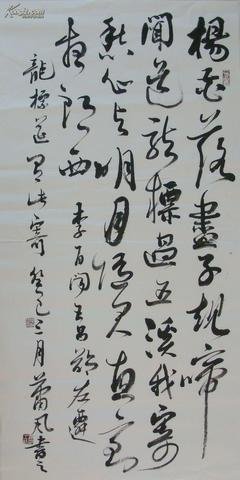 楊花落盡子規啼
聞道龍標過五溪我寄
愁心与明月隨君直到
夜郎西 李白聞王昌齡左遷
龍標遥有此寄 癸巳二月蕭風書之